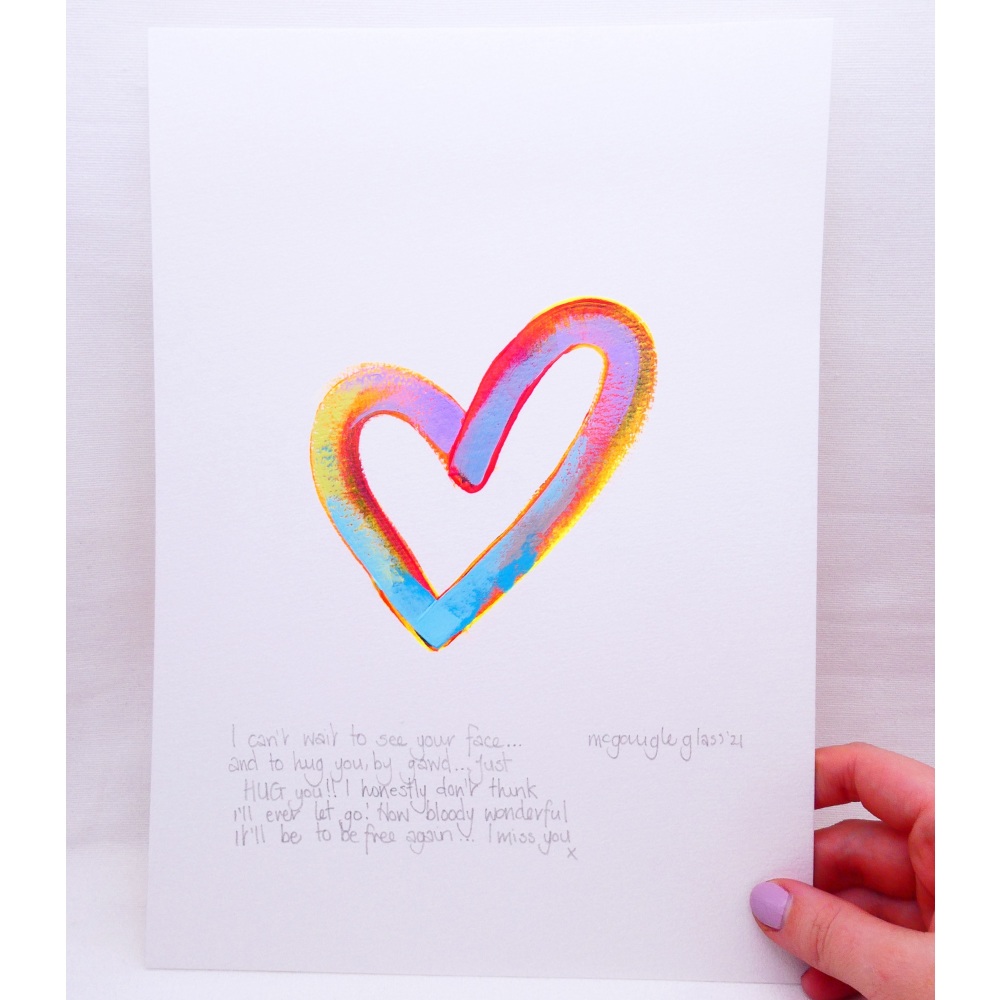 I can't wait to see your face...
and to hug you, by gawd... Just
HUG you!! I honestly don't think
i'll ever let go! How bloody wonderful
it'll be to be free again... I miss you
x
mcgonigle glass '21